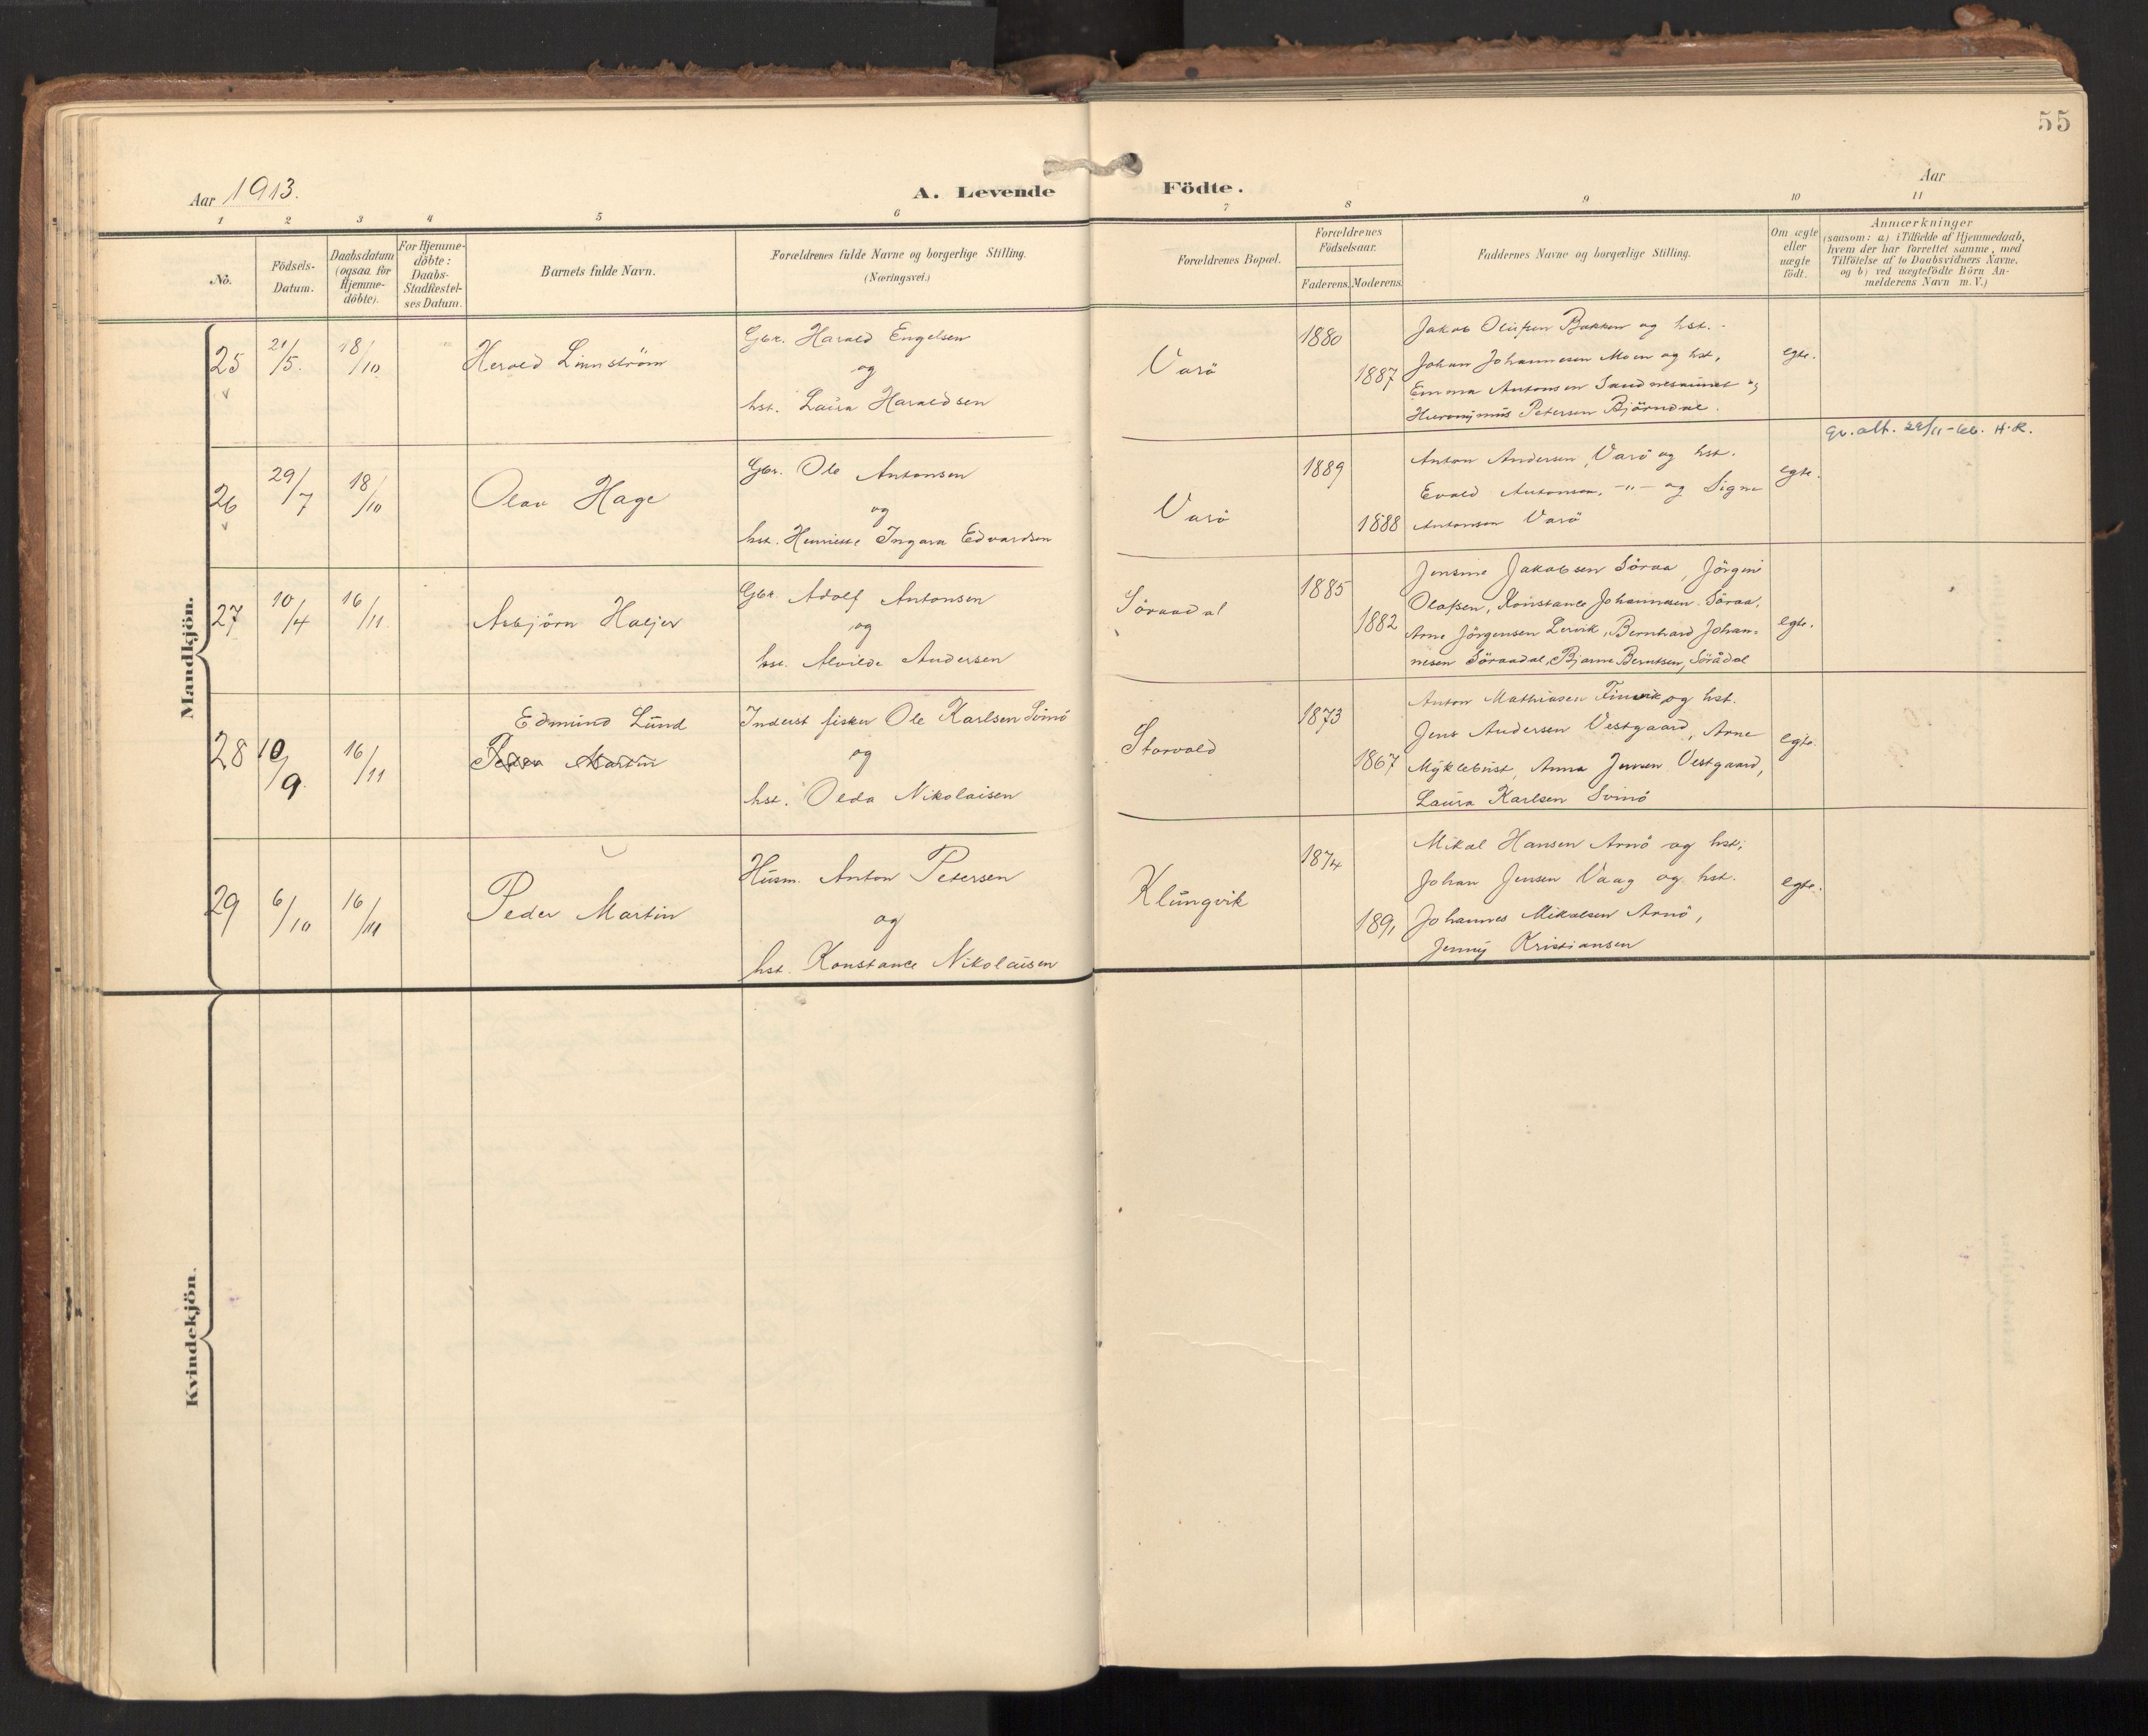 55
Aar 1913.
A. Levende Födte.
Aar
1 2 3 4 5 6 7 8 9 10 11
No.
Födsels-
Datum.
Daabsdatum
(ogsaa for
Hjemme-
döbte).
For Hjemme-
döbte:
Daabs-
Stadfestel-
ses Datum.
Barnets fulde Navn.
Forældrenes fulde Navne og borgerlige Stilling.
(Næringsvei.)
Forældrenes Bopæl.
Forældrenes
Födselsaar.
Faderens. Moderens.
Faddernes Navne og borgerlige Stilling.
Om ægte
eller
uægte
födt.
Anmærkninger
(saasom: a) i Tilfælde af Hjemmedaab,
hvem der har forrettet samme, med
Tilföielse af to Daabsvidners Navne,
og b) ved uægtefödte Börn An-
melderens Navn m. V.)
Mandkjön.
25 21/5. 18/10 Herold Linnström
Gbr. Harald Engelsen
og
hst. Laura Haraldsen
Varö 1880 1887
Jakob Olufsen Bakken og hst.
Johan Johannesen Moen og hst,
Emma Antonsen Sandnesaunet og
Hieronymus Petersen Björndal.
egte.
26 29/7 18/10 Olav Hage
Gbr. Ole Antonsen
og
hst. Henriette Ingara Edvardsen
Varö 1889 1888
Anton Andersen, Varö og hst.
Evald Antonsen, -"- og Signe
Antonsen Varö
egte.
Gv. att. 22/11-66. H.R.
27 10/4 16/11 Asbjörn Haljer
Gbr. Adolf Antonsen
og
hst. Alvilde Andersen
Söraadal 1885 1882
Jensine Jakobsen Söraa, Jörgine
Olafsen, Konstance Johannesen Söraa,
Arne Jörgensen Lervik, Bernhard Johan-
nesen Söraadal, Bjarne Berntsen, Sörådal
egte.
28 10/9 16/11 Edmund Lund
Peder Martin
Inderst fisker Ole Karlsen Svinö
og
hst. Olda Nikolaisen
Storvold 1873 1867
Anton Mathiasen Finvik og hst.
Jens Andersen Vestgaard, Arne
Myklebust, Anna Jensen Vestgaard,
Laura Karlsen Svinö
egte.
29 6/10 16/11 Peder Martin
Husm. Anton Petersen
og
hst. Konstance Nikolaisen
Klungvik 1874 1891
Mikal Hansen Arnö og hst,
Johan Jensen Vaag og hst.
Johannes Mikalsen Arnö,
Jenny Kristiansen
egte.
Kvindekjön.